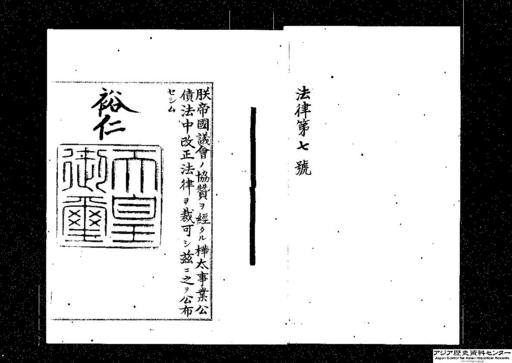 法律第七號
朕帝國議會ノ協贊ヲ經タル樺太事業公
債法中改正法律ヲ裁可シ茲ニ之ヲ公布
セシム
裕仁
天皇
御璽
アジア歴史資料センター
Japan Center for Asian Historical Records